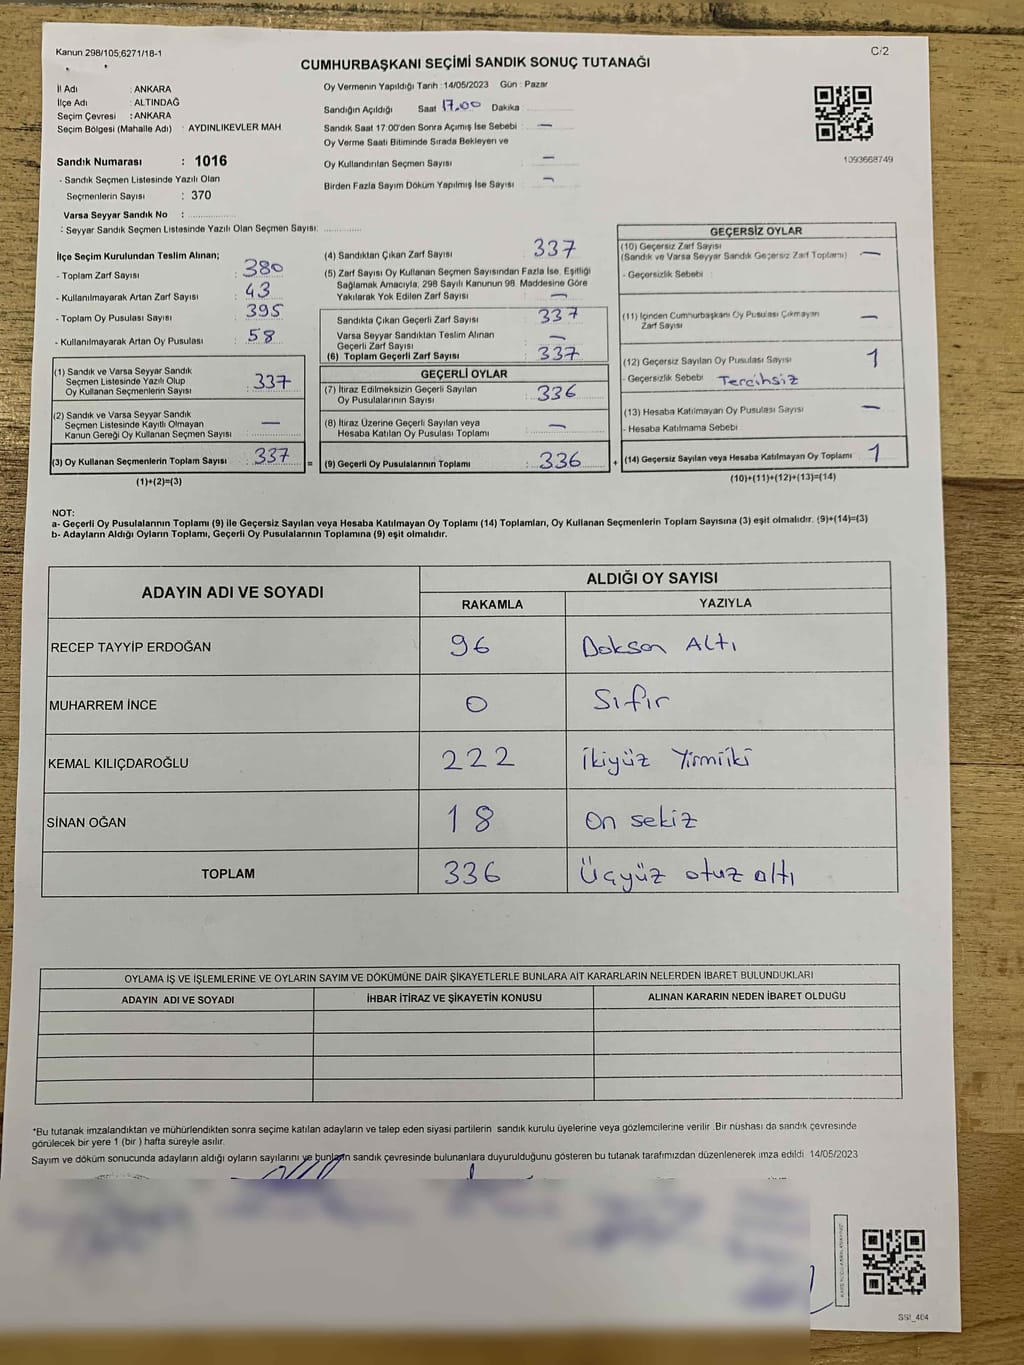 Kanun 298/105,6271/18-1
C/2
CUMHURBAŞKANI SEÇİMİ SANDIK SONUÇ TUTANAĞI
İl Adı : ANKARA
İlçe Adı : ALTINDAĞ
Seçim Çevresi : ANKARA
Seçim Bölgesi (Mahalle Adı) : AYDINLIKEVLER MAH
Sandık Numarası : 1016
- Sandık Seçmen Listesinde Yazılı Olan
Seçmenlerin Sayısı : 370
Varsa Seyyar Sandık No :
- Seyyar Sandık Seçmen Listesinde Yazılı Olan Seçmen Sayısı:
Oy Vermenin Yapıldığı Tarih : 14/05/2023 Gün : Pazar
Sandığın Açıldığı Saat 17.00 Dakika
Sandık Saat 17:00'den Sonra Açımış İse Sebebi : —
Oy Verme Saati Bitiminde Sırada Bekleyen ve
Oy Kullandırılan Seçmen Sayısı —
Birden Fazla Sayım Döküm Yapılmış İse Sayısı : —
1093668749
İlçe Seçim Kurulundan Teslim Alınan;
- Toplam Zarf Sayısı : 380
- Kullanılmayarak Artan Zarf Sayısı : 43
- Toplam Oy Pusulası Sayısı : 395
- Kullanılmayarak Artan Oy Pusulası : 58
(1) Sandık ve Varsa Seyyar Sandık
Seçmen Listesinde Yazılı Olup
Oy Kullanan Seçmenlerin Sayısı : 337
(2) Sandık ve Varsa Seyyar Sandık
Seçmen Listesinde Kayıtlı Olmayan
Kanun Gereği Oy Kullanan Seçmen Sayısı : —
(3) Oy Kullanan Seçmenlerin Toplam Sayısı : 337
(1)+(2)=(3)
(4) Sandıktan Çıkan Zarf Sayısı : 337
(5) Zarf Sayısı Oy Kullanan Seçmen Sayısından Fazla İse, Eşitliği
Sağlamak Amacıyla, 298 Sayılı Kanunun 98. Maddesine Göre
Yakılarak Yok Edilen Zarf Sayısı : —
Sandıkta Çıkan Geçerli Zarf Sayısı : 337
Varsa Seyyar Sandıktan Teslim Alınan
Geçerli Zarf Sayısı : —
(6) Toplam Geçerli Zarf Sayısı : 337
GEÇERLİ OYLAR
(7) İtiraz Edilmeksizin Geçerli Sayılan
Oy Pusulalarının Sayısı : 336
(8) İtiraz Üzerine Geçerli Sayılan veya
Hesaba Katılan Oy Pusulası Toplamı : —
= (9) Geçerli Oy Pusulalarının Toplamı : 336 +
GEÇERSİZ OYLAR
(10) Geçersiz Zarf Sayısı
(Sandık ve Varsa Seyyar Sandık Geçersiz Zarf Toplamı) —
- Geçersizlik Sebebi :
(11) İçinden Cumhurbaşkanı Oy Pusulası Çıkmayan
Zarf Sayısı —
(12) Geçersiz Sayılan Oy Pusulası Sayısı 1
- Geçersizlik Sebebi : Tercihsiz
(13) Hesaba Katılmayan Oy Pusulası Sayısı —
- Hesaba Katılmama Sebebi :
(14) Geçersiz Sayılan veya Hesaba Katılmayan Oy Toplamı 1
(10)+(11)+(12)+(13)=(14)
NOT:
a- Geçerli Oy Pusulalarının Toplamı (9) ile Geçersiz Sayılan veya Hesaba Katılmayan Oy Toplamı (14) Toplamları, Oy Kullanan Seçmenlerin Toplam Sayısına (3) eşit olmalıdır. (9)+(14)=(3)
b- Adayların Aldığı Oyların Toplamı, Geçerli Oy Pusulalarının Toplamına (9) eşit olmalıdır.
ADAYIN ADI VE SOYADI
ALDIĞI OY SAYISI
RAKAMLA YAZIYLA
RECEP TAYYİP ERDOĞAN 96 Doksan Altı
MUHARREM İNCE 0 Sıfır
KEMAL KILIÇDAROĞLU 222 İkiyüz Yirmiiki
SİNAN OĞAN 18 On sekiz
TOPLAM 336 Üçyüz otuz altı
OYLAMA İŞ VE İŞLEMLERİNE VE OYLARIN SAYIM VE DÖKÜMÜNE DAİR ŞİKAYETLERLE BUNLARA AİT KARARLARIN NELERDEN İBARET BULUNDUKLARI
ADAYIN ADI VE SOYADI İHBAR İTİRAZ VE ŞİKAYETİN KONUSU ALINAN KARARIN NEDEN İBARET OLDUĞU
*Bu tutanak imzalandıktan ve mühürlendikten sonra seçime katılan adayların ve talep eden siyasi partilerin sandık kurulu üyelerine veya gözlemcilerine verilir .Bir nüshası da sandık çevresinde
görülecek bir yere 1 (bir ) hafta süreyle asılır.
Sayım ve döküm sonucunda adayların aldığı oyların sayılarını ve bunların sandık çevresinde bulunanlara duyurulduğunu gösteren bu tutanak tarafımızdan düzenlenerek imza edildi 14/05/2023
SSI_404